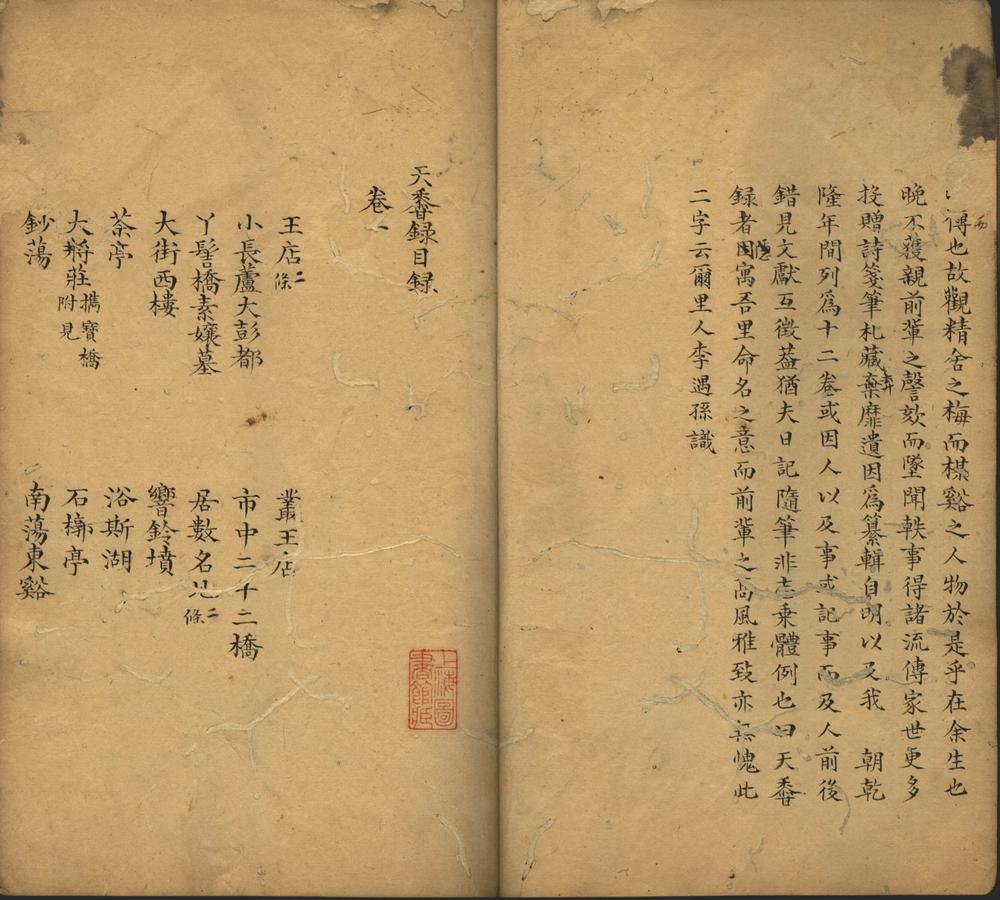 傳也故觀精舍之梅而棋谿之人物於是乎在余生也
晚不獲親前輩之謦欬而墜聞軼事得諸流傳家世更多
投贈詩箋筆札藏棄靡遺因為纂輯自明以及我 朝乾
隆年間列為十二卷或因人以及事或記事而及人前後
錯見文獻互徵蓋猶夫日記隨筆非志乘體例也曰天香
録者隱寓吾里命名之意而前輩之高風雅致亦無愧此
二字云爾里人李遇孫識
天香録目録
卷一
王店二條
叢王店
小長蘆大彭都
市中二十二橋
丫髻橋素孃墓
居數名見二條
大街西樓
響鈴墳
茶亭
浴斯湖
大將莊攜寶橋附見
石槨亭
鈔蕩
南蕩東谿
上海圖書館藏